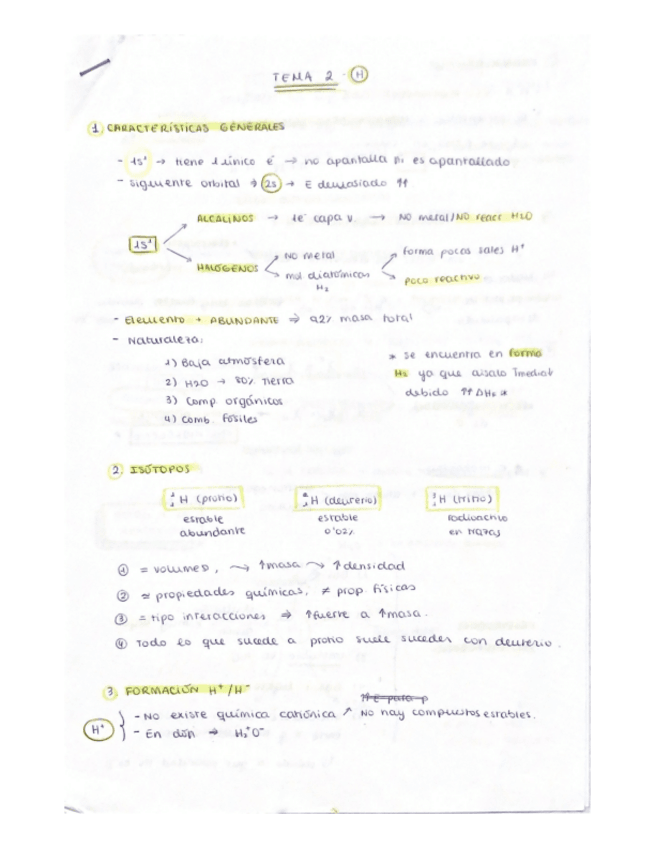 TEMA 2 · H
1 CARACTERÍSTICAS GENERALES
- 1s¹ → tiene 1 único e⁻ → no apantalla ni es apantallado
- Siguiente orbital → 2s → E demasiado ↑↑
ALCALINOS → 1e⁻ capa v. → NO metal/NO reacc H2O
1s¹
HALÓGENOS
NO metal
mol diatómicas
H₂
forma pocas sales H⁺
poco reactivo
- Elemento + ABUNDANTE ⇒ 92% masa total
- Naturaleza:
1) Baja atmósfera
2) H2O → 80% Tierra
3) Comp. orgánicos
4) Comb. Fósiles
* se encuentra en forma
H₂ ya que aislarlo
debido ↑↑ ΔH *
2. ISÓTOPOS
¹₁H (protio)
estable
abundante
²₁H (deuterio)
estable
0'02%
³₁H (tritio)
radioactivo
en trazas
① = volumen, → ↑masa → ↑densidad
② ≈ propiedades químicas, ≠ prop. físicas
③ = tipo interacciones ⇒ ↑fuerte a ↑masa.
④ Todo lo que sucede a protio suele suceder con deuterio.
3. FORMACIÓN H⁺/H⁻
H⁺
- No existe química catiónica ↗ No hay compuestos estables.
- En dón →